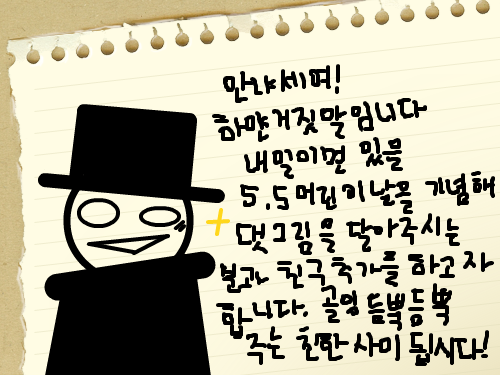 안냐세여!
하얀거짓말입니다
내일이면 있을
5.5 어린이날을 기념해
댓그림을 달아주시는
분과 친구추가를 하고자
합니다. 골영 듬뿍듬뿍
주는 친한 사이 됩시다!